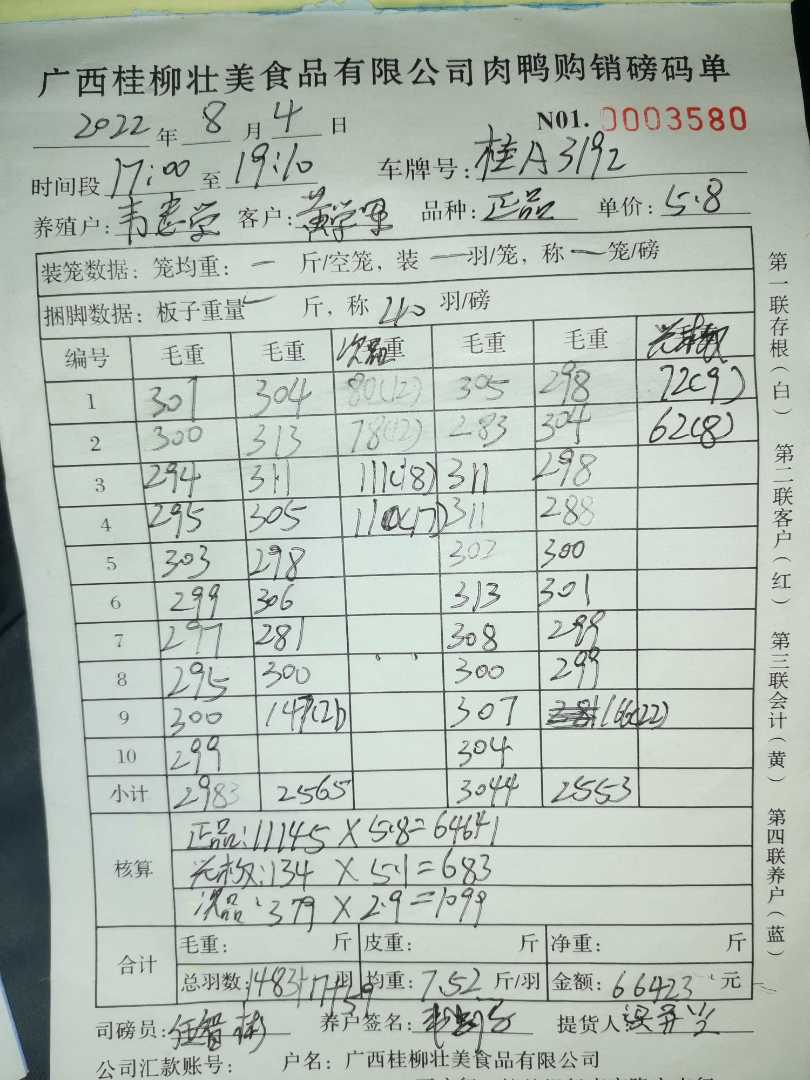 广西桂柳壮美食品有限公司肉鸭购销磅码单
2022 年 8 月 4 日 N01. 0003580
时间段 17:00 至 19:10 车牌号: 桂A3192
养殖户: 韦 学 客户: 黄学 品种: 正品 单价: 5.8
装笼数据: 笼均重: 一 斤/空笼, 装 一 羽/笼, 称 一 笼/磅
捆脚数据: 板子重量 斤, 称 40 羽/磅
编号 毛重 毛重 次品 重 毛重 毛重
1 301 304 80(12) 305 298 72(9)
2 300 313 78(12) 283 304 62(8)
3 294 311 111(18) 311 298
4 295 305 110(17) 311 288
5 303 298 302 300
6 299 306 313 301
7 297 281 308 299
8 295 300 300 299
9 300 147(21) 307 166(22)
10 299 304
小计 2983 2565 3044 2553
核算
正品: 11145 X 5.8 = 64641
:134 X 5.1 = 683
次品: 379 X 2.9 = 1099
合计
毛重: 斤 皮重: 斤 净重: 斤
总羽数: 1483+17+59 羽 均重: 7.52 斤/羽 金额: 66423 元
司磅员: 养户签名: 提货人
公司汇款账号: 户名: 广西桂柳壮美食品有限公司
第一联存根(白) 第二联客户(红) 第三联会计(黄) 第四联养户(蓝)